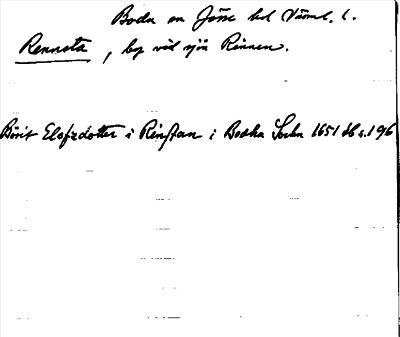 Boda sn Jösse hd Värml. l.
Rennsta, by vid sjön Rinnen.
Börit Elofzdotter i Rinstan i Bodha Sochn 1651 db s. 196